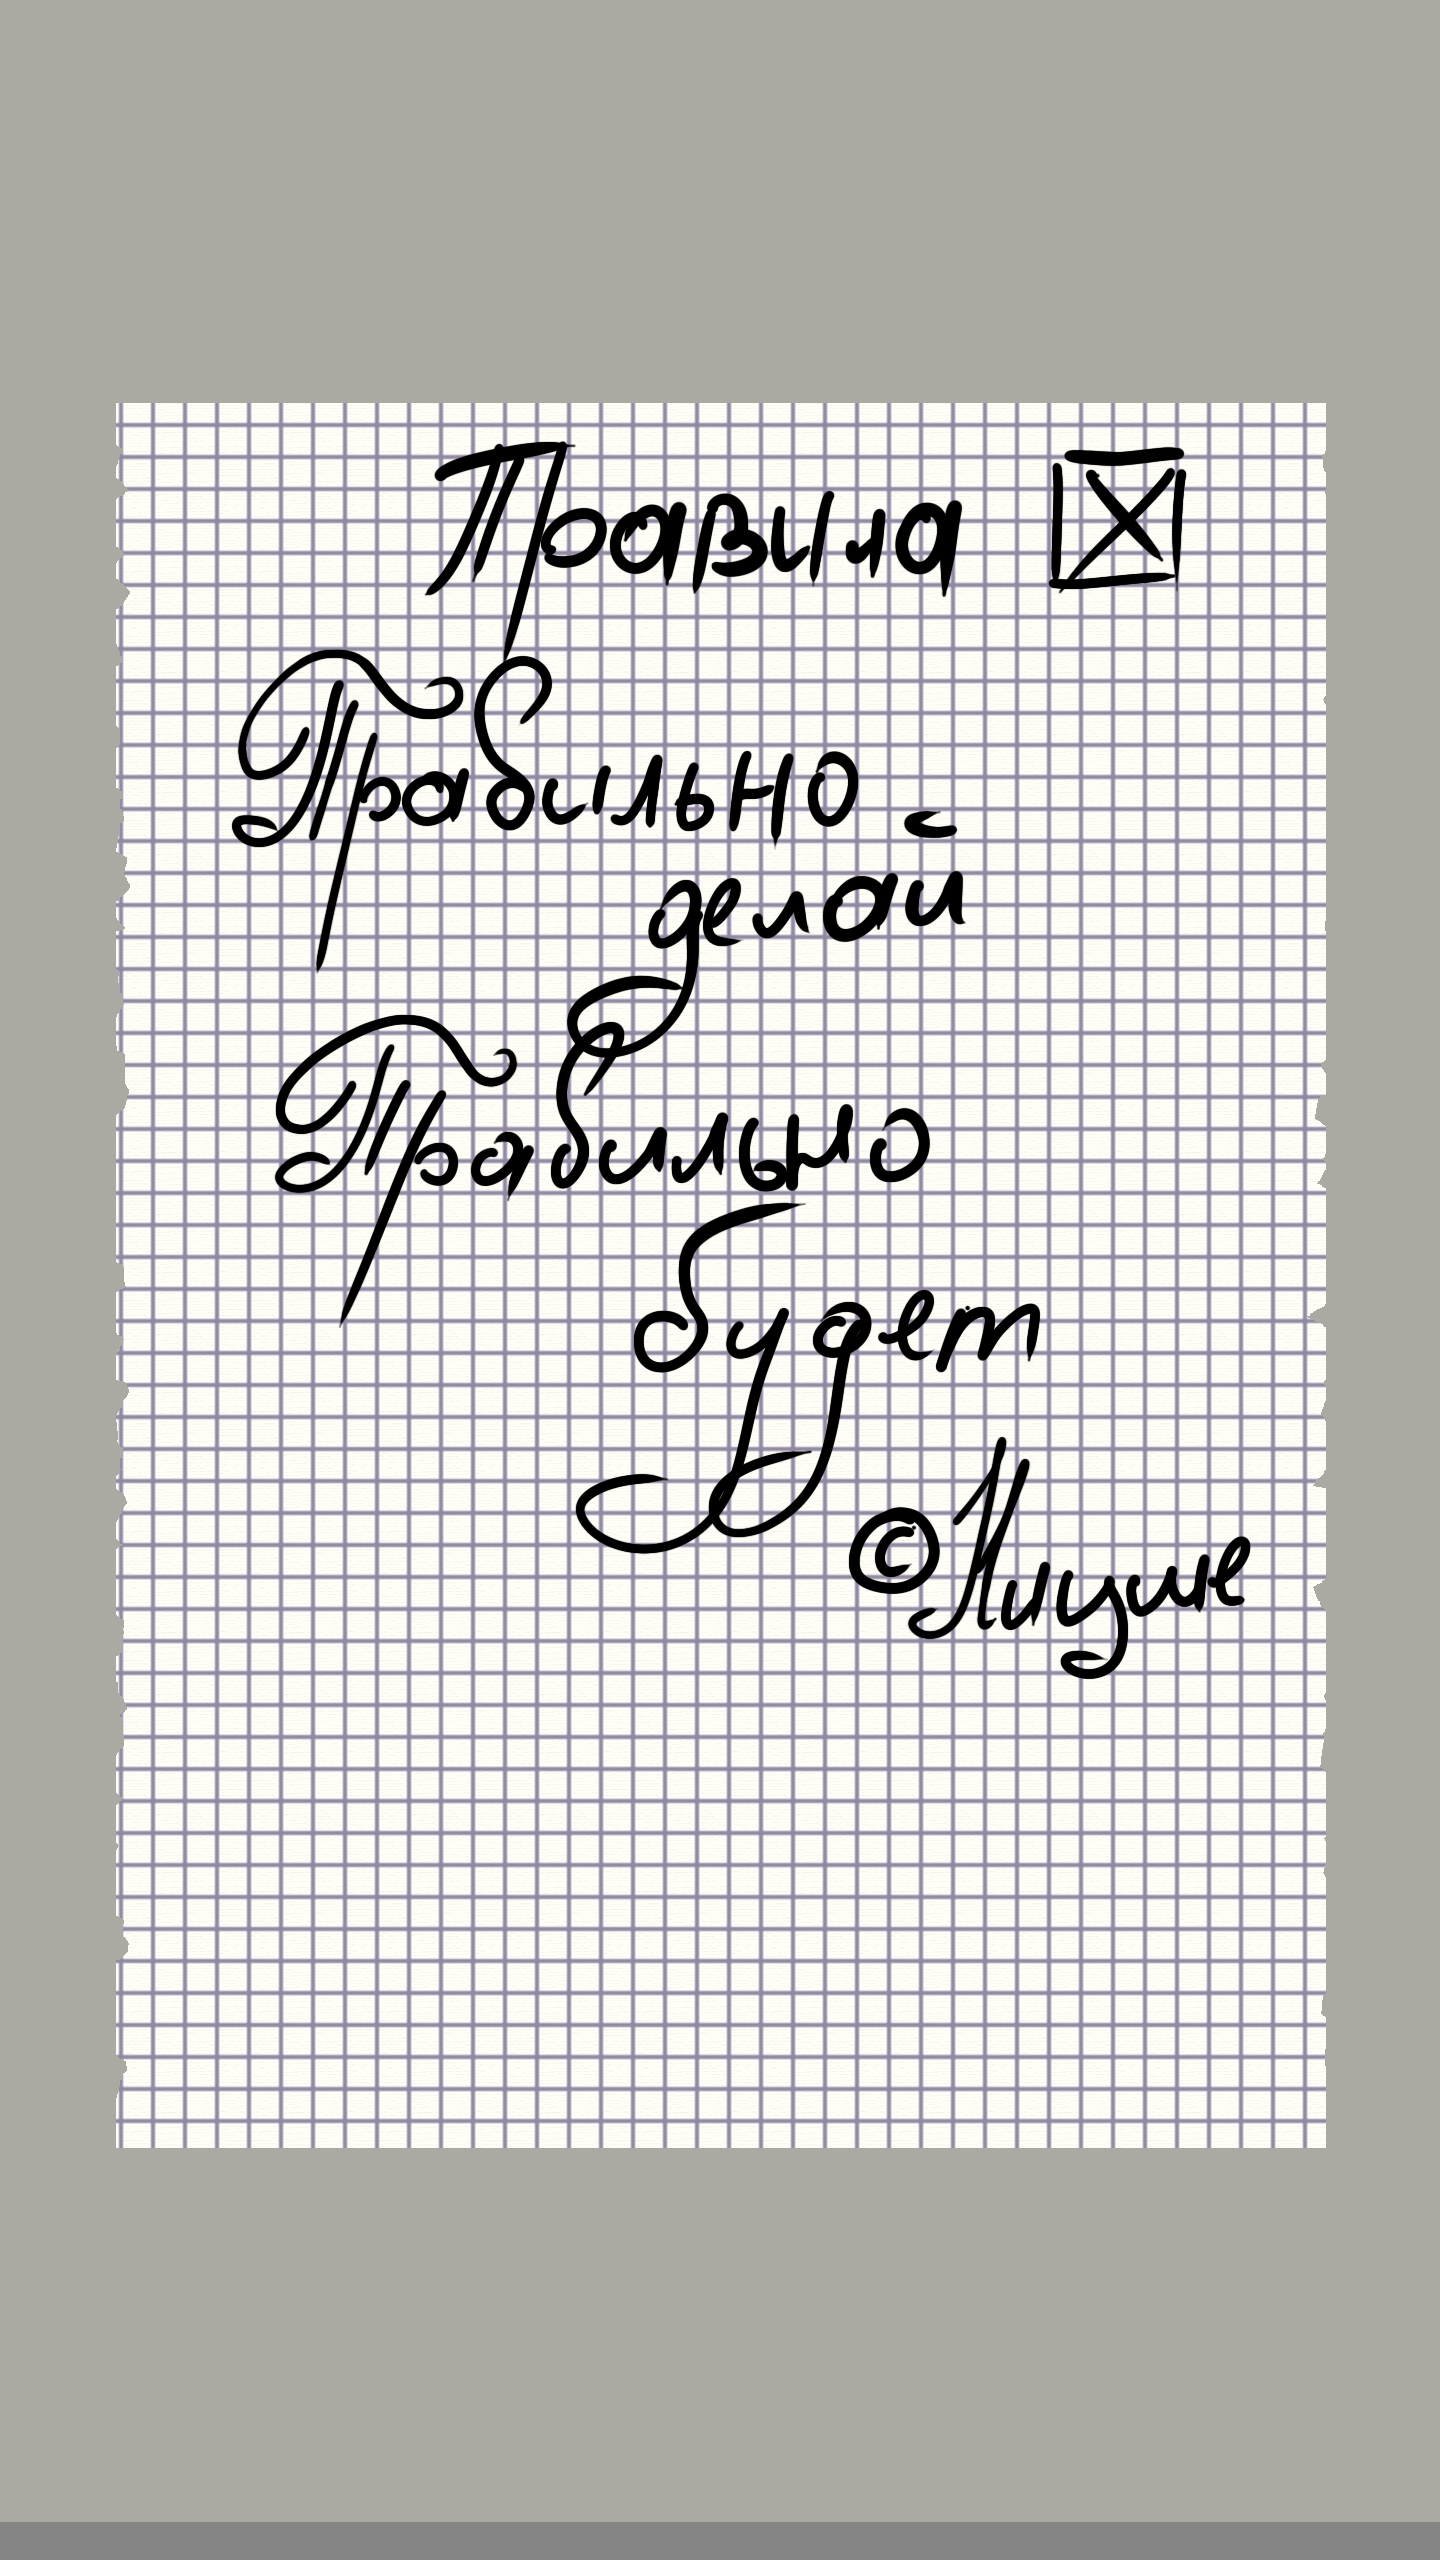 Правила ☒
Правильно
делай
Правильно
будет
© Ницше